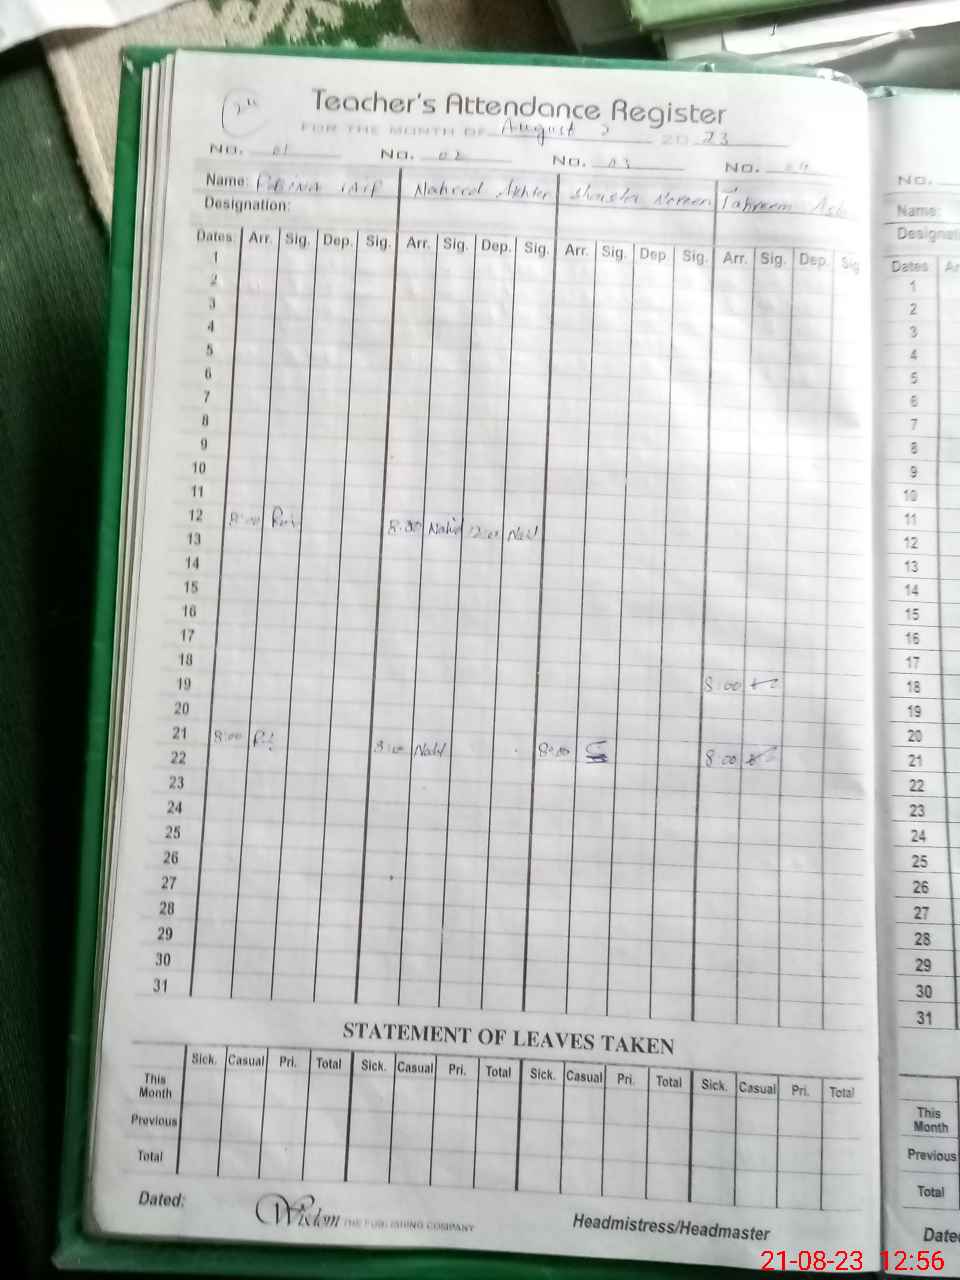 24
Teacher's Attendance Register
FOR THE MONTH OF August 2023
No. 01 No. 02 No. 03 No. 04
Name: Naheed Akhter Shaista Noreen Tahreem
Designation:
Dates Arr. Sig. Dep. Sig. Arr. Sig. Dep. Sig. Arr. Sig. Dep. Sig. Arr. Sig. Dep. Sig
1
2
3
4
5
6
7
8
9
10
11
12 8:00 8:00 12:00
13
14
15
16
17
18
19 8:00
20
21 8:00 8:00 8:00 8:00
22
23
24
25
26
27
28
29
30
31
STATEMENT OF LEAVES TAKEN
Sick. Casual Pri. Total Sick. Casual Pri. Total Sick. Casual Pri. Total Sick. Casual Pri. Total
This Month
Previous
Total
Dated:
Wisdom THE PUBLISHING COMPANY
Headmistress/Headmaster
No.
Name:
Designati
Dates Ar
1
2
3
4
5
6
7
8
9
10
11
12
13
14
15
16
17
18
19
20
21
22
23
24
25
26
27
28
29
30
31
This Month
Previous
Total
Dated
21-08-23 12:56